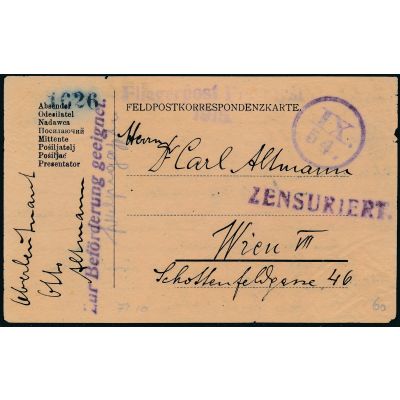 1626
Absender
Odesilatel
Nadawca
Посилаючий
Mittente
Pošiljatelj
Pošiljač
Presentator
Oberleutnant
Otto Altmann
zur Beförderung geeignet.
Fliegerpost
1915
FELDPOSTKORRESPONDENZKARTE.
IX.
54.
Herrn
Dr Carl Altmann
ZENSURIERT.
Wien VII
Schottenfeldgasse 46
60